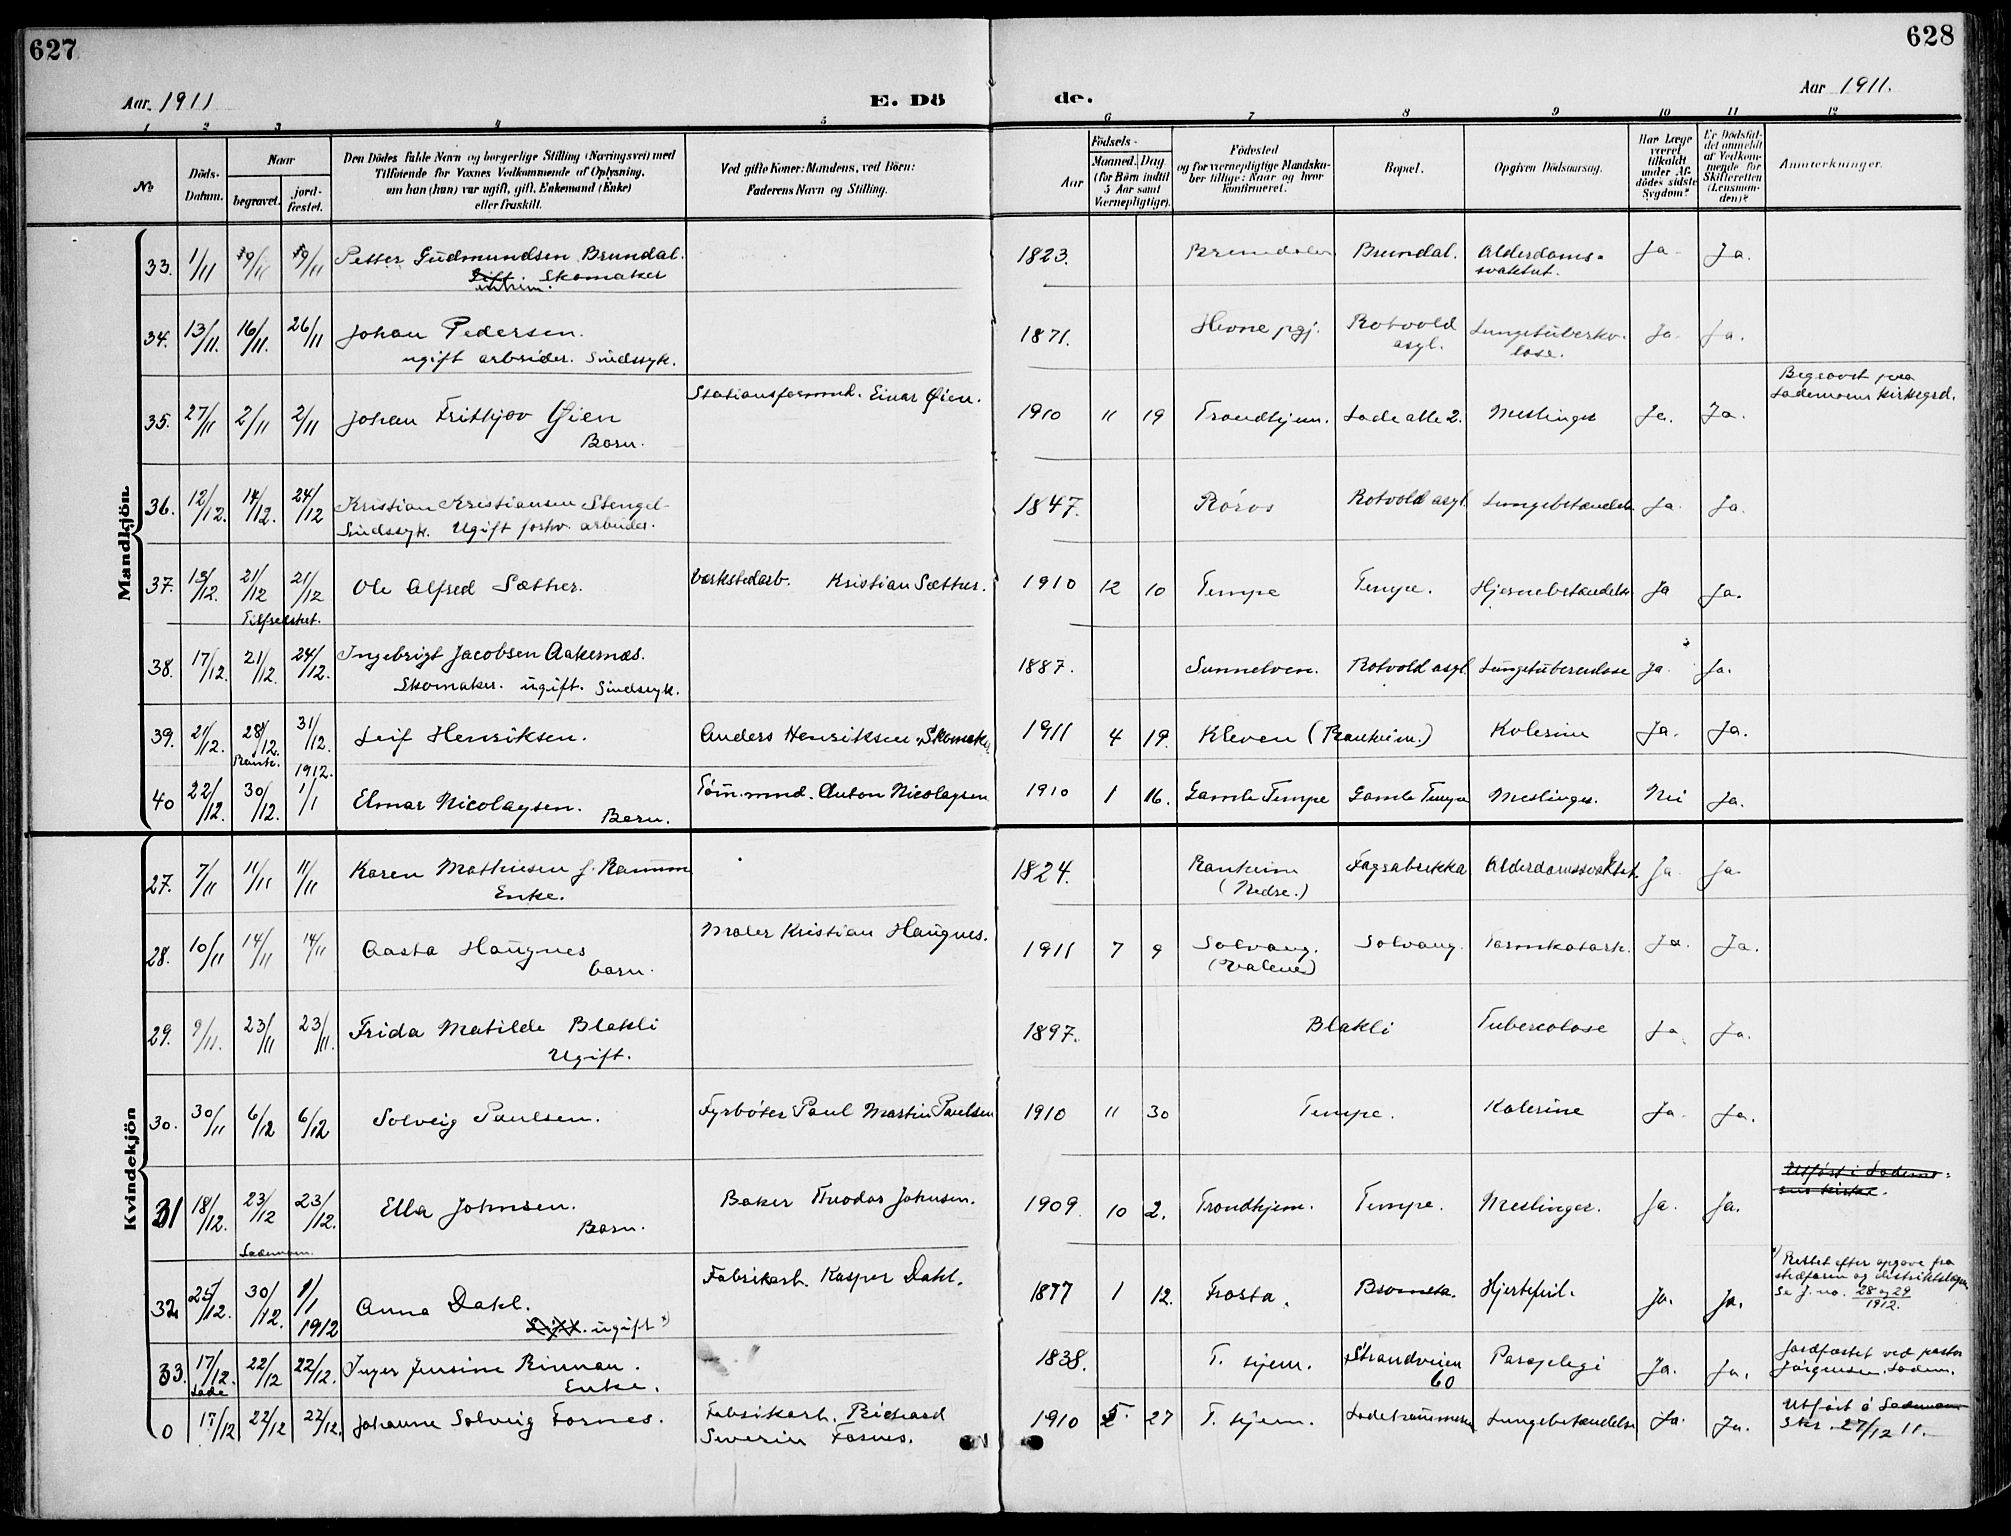 627
628
Aar 1911
E. Dö
de.
Aar 1911.
1 2 3 4 5 6 7 8 9 10 11 12
No
Döds-Datum.
Naar
begravet.
jord-fæstet.
Den Dödes fulde Navn og borgerlige Stilling (Næringsvei) med
Tilföiende for Voxnes Vedkommende af Oplysning,
om han (hun) var ugift, gift, Enkemand (Enke)
eller fraskilt.
Ved gifte Koner: Mandens, ved Börn:
Faderens Navn og Stilling.
Födsels-
Aar
Maaned. Dag
(for Börn indtil
5 Aar samt
Værnepligtige).
Födested
og for værnepligtige Mandska-
ber tillige: Naar og hvor
konfirmeret.
Bopæl.
Opgiven Dödsaarsag.
Har Læge
været
tilkaldt
under Af-
dödes sidste
Sygdom?
Er Dödsfal-
det anmeldt
af Vedkom-
mende for
Skifteretten
(Lensman-
den)?
Anmerkninger.
Mandkjön.
33. 1/11 9/11 9/11 Petter Gudmundsen Brundal. 1823. Brundalen Brundal. Alderdoms- Ja. Ja.
Gift Skomaker svakhet.
34. 13/11. 16/11. 26/11 Johan Pedersen. 1871. Hevne pgj. Rotvold Lungetuberku- Ja. Ja.
ugift arbeider. Sindssyk. asyl. lose.
35. 27/11 2/11 2/11 Johan Fritkjov Øien Stationsformd. Einar Øien. 1910 11 19 Trondhjem. Lade alle 2. Meslinger Ja. Ja. Begravet paa
Barn. Lademoens kirkegrd.
36. 12/12. 14/12. 24/12 Kristian Kristiansen Stengel- 1847. Röros Rotvold asyl. Lungebetændelse Ja. Ja.
Sindssyk. Ugift forhv. arbeider.
37. 13/12. 21/12 21/12 Ole Alfred Sæther. Værkstedarb. Kristian Sæther. 1910 12 10 Tempe Tempe. Hjernebetændelse Ja Ja.
Tilfredshet.
38. 17/12. 21/12. 24/12. Ingebrigt Jacobsen Aakernes. 1887. Sunnelven. Rotvold asyl. Lungetuberculose Ja. Ja.
Skomaker. ugift. Sindssyk.
39. 21/12. 28/12. 31/12. Leif Henriksen. Anders Henriksen, Skomaker 1911 4 19. Kleven (Ranheim.) Kolerine Ja. Ja.
Ranh. 1912.
40 22/12. 30/12. 1/1 Elmar Nicolaysen. Töm.mnd. Anton Nicolaysen 1910 1 16. Gamle Tempe Gamle Tempe Meslinger. Nei Ja.
Barn.
Kvindekjön
27. 7/11 11/11 11/11 Karen Mathiesen f. Ramm 1824. Ranheim Fagrabrekka Alderdomssvakhet. Ja. Ja.
Enke. (Nedre.)
28. 10/11 14/11 14/11 Aasta Haugnes Maler Kristian Haugnes. 1911 7 9 Solvang. Solvang. Tarmkatarh. Ja. Ja.
barn.
29. 9/11. 23/11 23/11. Frida Matilde Blakli 1897. Blakli Tuberculose Ja. Ja.
Ugift.
30. 30/11 6/12 6/12 Solveig Paulsen. Fyrböter Paul Martin Paulsen 1910 11 30 Tempe. Kolerine Ja. Ja.
31 18/12. 23/12 23/12. Ella Johnsen. Baker Teodor Johnsen. 1909 10 2. Trondhjem. Tempe. Meslinger. Ja. Ja. Utført i Lademo-
Barn. ens kirke.
Lademoen.
32. 25/12. 30/12. 1/1 1912 Anna Dahl. Fabrikarb. Kasper Dahl. 1877 1 12. Frosta. Hjertefeil. Ja. Ja. x) Rettet efter opgave fra
Gift. ugift x) stedfaren og distriktslægen
Se J. no. 28 og 29
1912.
33. 17/12. 22/12 22/12. Inger Jensine Rinnan. 1838. T. hjem. Strandveien Paraplegi Ja. Ja. Jordfæstet ved pastor
Lade Enke. 60 Jörgensen. Ladem.
0 17/12 22/12 22/12. Johanne Solveig Fornes. Fabrikarb. Richard 1910 5. 27 T. hjem. Ladehammeren Lungebetændelse Ja. Ja. Utført å Lademoen
Severin Fornes. Skr. 27/12 11.